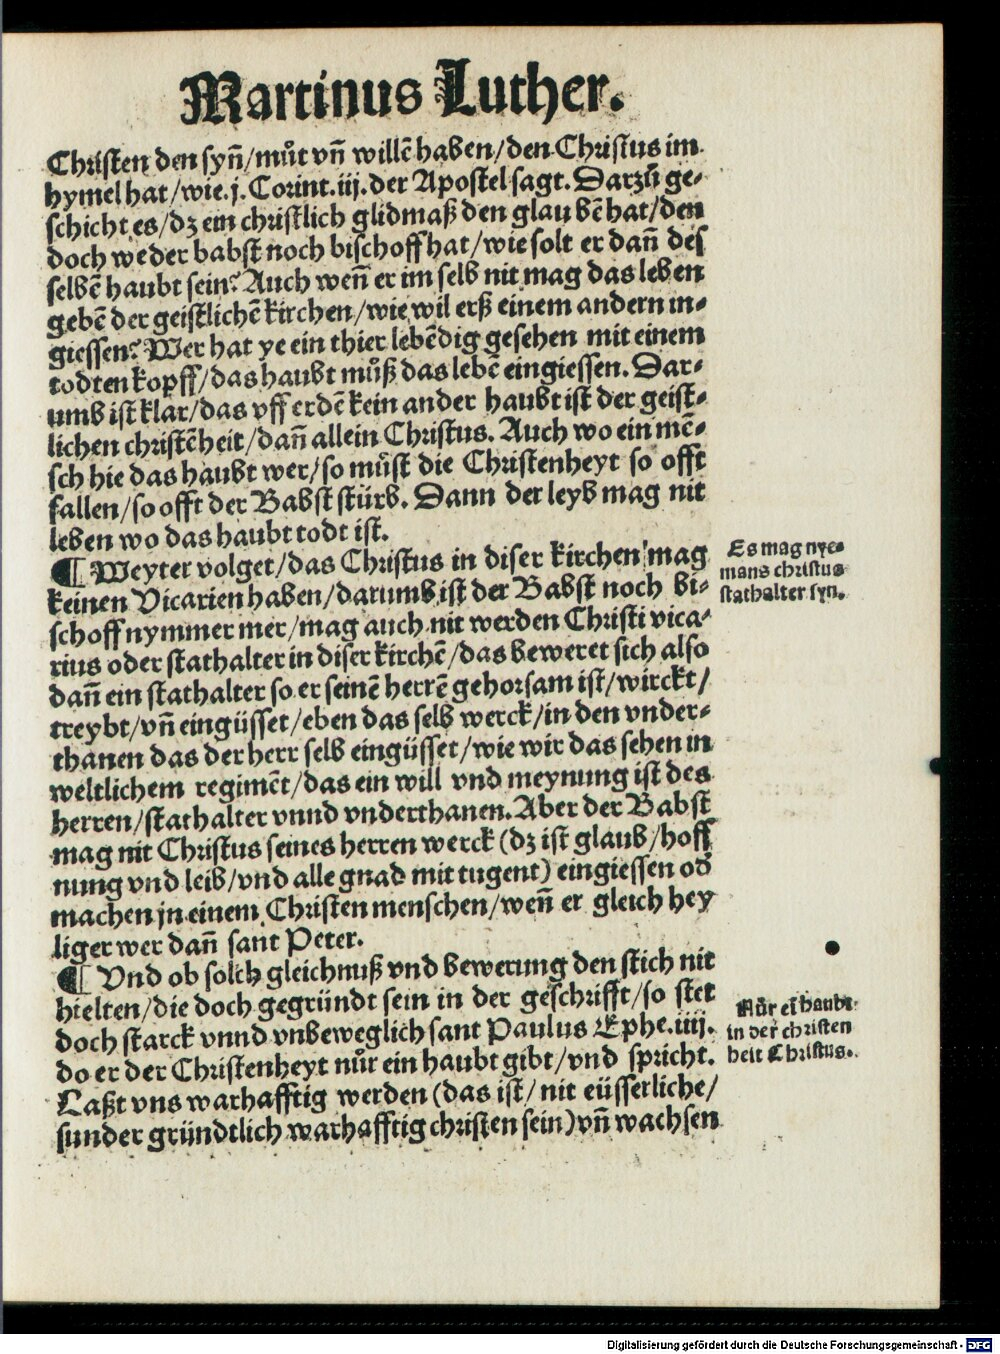 Martinus Luther.
Christen den syñ/můt vñ willẽ haben/den Christus im
hymel hat/wie.j.Corint.iij.der Apostel sagt. Darzů ge⸗
schicht es/dz ein christlich glidmaß den glaubẽ hat/den
doch weder babst noch bischoff hat/wie solt er dañ des
selbẽ haubt sein? Auch weñ er im selb nit mag das leben
gebẽ der geistlichẽ kirchen/wie wil erß einem andern in⸗
giessen? Wer hat ye ein thier lebẽdig gesehen mit einem
todten kopff/das haubt můß das lebẽ eingiessen. Dar⸗
umb ist klar/das vff erdẽ kein ander haubt ist der geist⸗
lichen christẽheit/dañ allein Christus. Auch wo ein mẽ⸗
sch hie das haubt wer/so můst die Christenheyt so offt
fallen/so offt der Babst stürb. Dann der leyb mag nit
leben wo das haubt todt ist.
¶ Weyter volget/das Christus in diser kirchen mag
keinen Vicarien haben/darumb ist der Babst noch bi⸗
schoff nymmer mer/mag auch nit werden Christi vica⸗
rius oder stathalter in diser kirchẽ/das beweret sich also
dañ ein stathalter so er seinẽ herrẽ gehorsam ist/wirckt/
treybt/vñ eingüsset/eben das selb werck/in den vnder⸗
thanen das der herr selb eingüsset/wie wir das sehen in
weltlichem regimẽt/das ein will vnd meynung ist des
herren/stathalter vnnd vnderthanen. Aber der Babst
mag nit Christus seines herren werck (dz ist glaub/hoff
nung vnd leib/vnd alle gnad mit tugent) eingiessen od̕
machen jn einem Christen menschen/weñ er gleich hey
liger wer dañ sant Peter.
¶ Vnd ob solch gleichnuß vnd bewerung den stich nit
hielten/die doch gegründt sein in der geschrifft/so stet
doch starck vnnd vnbeweglich sant Paulus Ephe.iiij.
do er der Christenheyt nůr ein haubt gibt/vnd spricht.
Laßt vns warhafftig werden (das ist/ nit eüsserliche/
sunder gründtlich warhafftig christen sein) vñ wachsen
Es mag nye⸗
mans christus
stathalter syn.
Nůr eĩ haubt
in der christen
heit Christus.
Digitalisierung gefördert durch die Deutsche Forschungsgemeinschaft - DFG